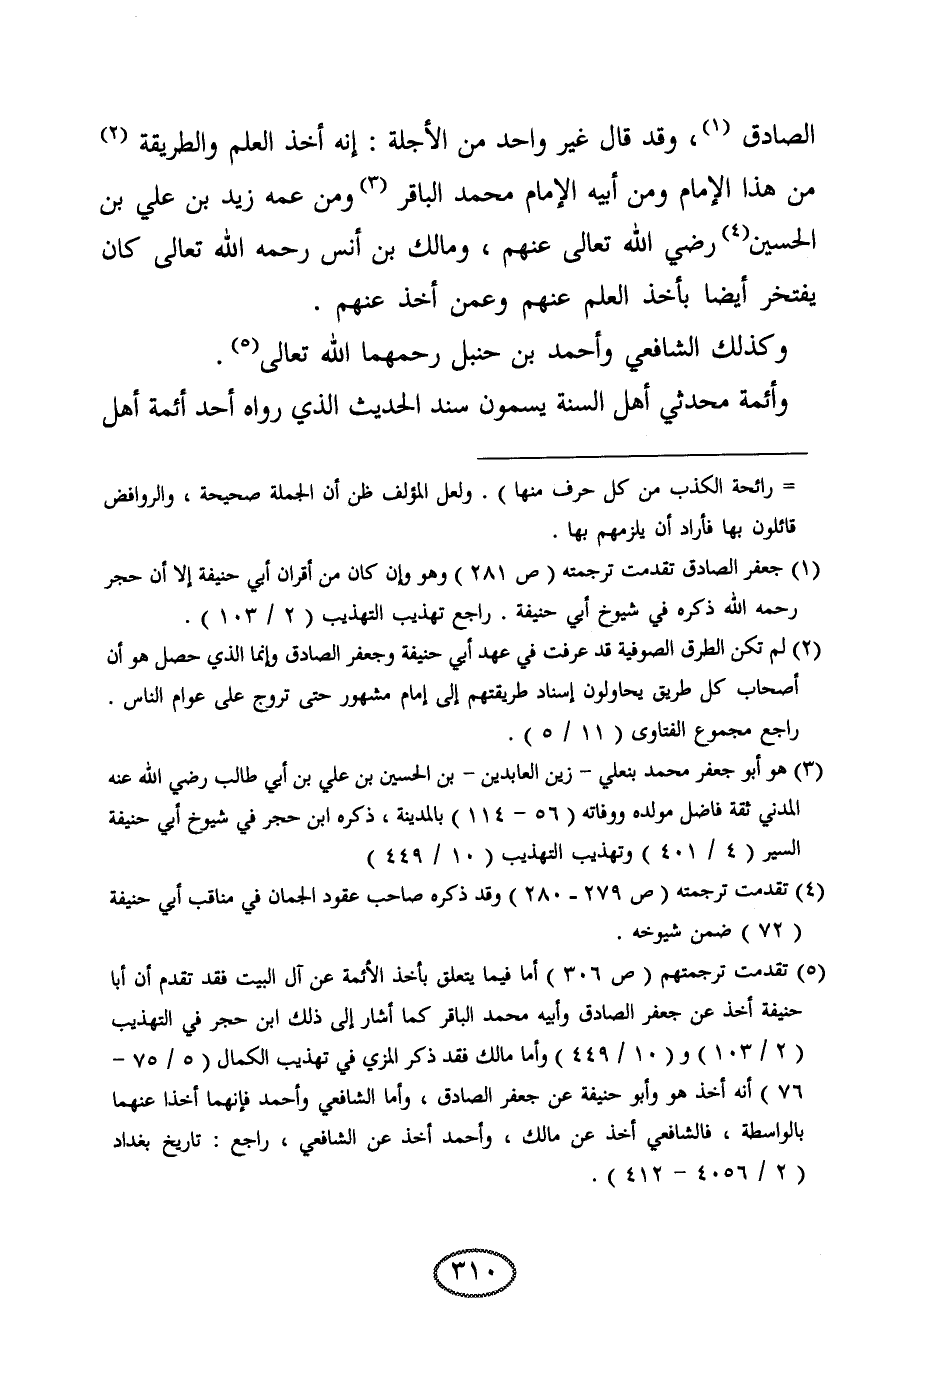 الصادق (١)، وقد قال غير واحد من الأجلة : إنه أخذ العلم والطريقة (٢)
من هذا الإمام ومن أبيه الإمام محمد الباقر (٣) ومن عمه زيد بن علي بن
الحسين(٤) رضي الله تعالى عنهم ، ومالك بن أنس رحمه الله تعالى كان
يفتخر أيضا بأخذ العلم عنهم وعمن أخذ عنهم .
وكذلك الشافعي وأحمد بن حنبل رحمهما الله تعالى(٥) .
وأئمة محدثي أهل السنة يسمون سند الحديث الذي رواه أحد أئمة أهل
= رائحة الكذب من كل حرف منها ) . ولعل المؤلف ظن أن الجملة صحيحة ، والروافض
قائلون بها فأراد أن يلزمهم بها .
(١) جعفر الصادق تقدمت ترجمته ( ص ٢٨١ ) وهو وإن كان من أقران أبي حنيفة إلا أن حجر
رحمه الله ذكره في شيوخ أبي حنيفة . راجع تهذيب التهذيب ( ٢ / ١٠٣ ) .
(٢) لم تكن الطرق الصوفية قد عرفت في عهد أبي حنيفة وجعفر الصادق وإنما الذي حصل هو أن
أصحاب كل طريق يحاولون إسناد طريقتهم إلى إمام مشهور حتى تروج على عوام الناس .
راجع مجموع الفتاوى ( ١١ / ٥ ) .
(٣) هو أبو جعفر محمد بنعلي - زين العابدين - بن الحسين بن علي بن أبي طالب رضي الله عنه
المدني ثقة فاضل مولده ووفاته ( ٥٦ - ١١٤ ) بالمدينة ، ذكره ابن حجر في شيوخ أبي حنيفة
السير ( ٤ / ٤٠١ ) وتهذيب التهذيب ( ١٠ / ٤٤٩ )
(٤) تقدمت ترجمته ( ص ٢٧٩ - ٢٨٠ ) وقد ذكره صاحب عقود الجمان في مناقب أبي حنيفة
( ٧٢ ) ضمن شيوخه .
(٥) تقدمت ترجمتهم ( ص ٣٠٦ ) أما فيما يتعلق بأخذ الأئمة عن آل البيت فقد تقدم أن أبا
حنيفة أخذ عن جعفر الصادق وأبيه محمد الباقر كما أشار إلى ذلك ابن حجر في التهذيب
( ٢ / ١٠٣ ) و ( ١٠ / ٤٤٩ ) وأما مالك فقد ذكر المزي في تهذيب الكمال ( ٥ / ٧٥ -
٧٦ ) أنه أخذ هو وأبو حنيفة عن جعفر الصادق ، وأما الشافعي وأحمد فإنهما أخذا عنهما
بالواسطة ، فالشافعي أخذ عن مالك ، وأحمد أخذ عن الشافعي ، راجع : تاريخ بغداد
( ٢ / ٤٠٥٦ - ٤١٢ ) .
٣١٠